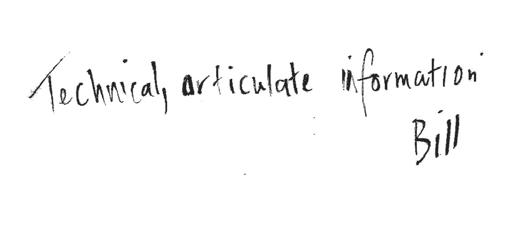 Technical, articulate information
Bill